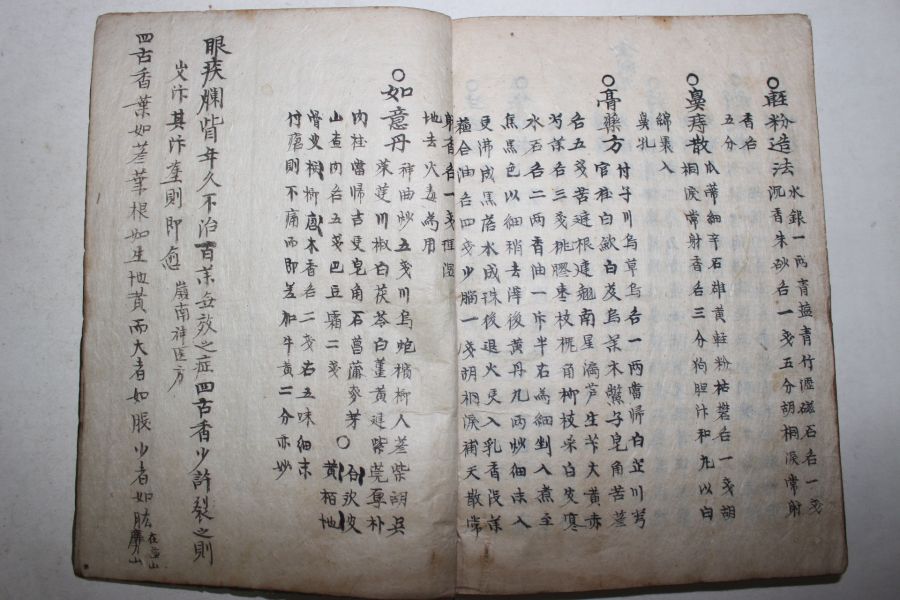 ○輕粉造法 水銀一兩青鹽青竹瀝磁石各一戔
沉香朱砂各一戔五分胡桐淚常射
香各
五分
○鼻痔散 瓜蒂細辛石雄黃輕粉枯礬各一戔胡
桐淚常射香各三分狗胆汁和丸以白
綿裹入
鼻孔
○膏藥方 付子川烏草烏各一兩當歸白芷川芎
官桂白歛白芨烏藥木鱉子皂角苦蔘
各五戔苦連根連翹南星
芍藥各三戔桃膠枣枝槐角柳枝采白芨寒
水石各二兩香油一斤半右為細剉入煮至
焦黑色以細稍去滓後黃丹九兩炒細末入
更沸成黑磨水成珠後退火更入乳香沒藥
蘊合油各四戔少腦一戔胡桐淚補天散常
射香各一戔
地去火毒為用
○如意丹 神曲炒五戔川烏炮檳柳人蔘柴胡吳
茱萸川椒白茯苓白薑黃連紫莞厚朴
肉桂當歸吉更皂角石菖蒲麥芽○
山查肉各五戔巴豆霜二戔 黃栢地
木香各二戔右五味細末
付瘡則不痛而即差加牛黃二分亦妙
眼疾爛眥年久不治百藥無效之症四古香少許裂之則
其汁 則即愈 嶺南神医方
四古香葉如蔘葉根如生地黃而大者如 少者如